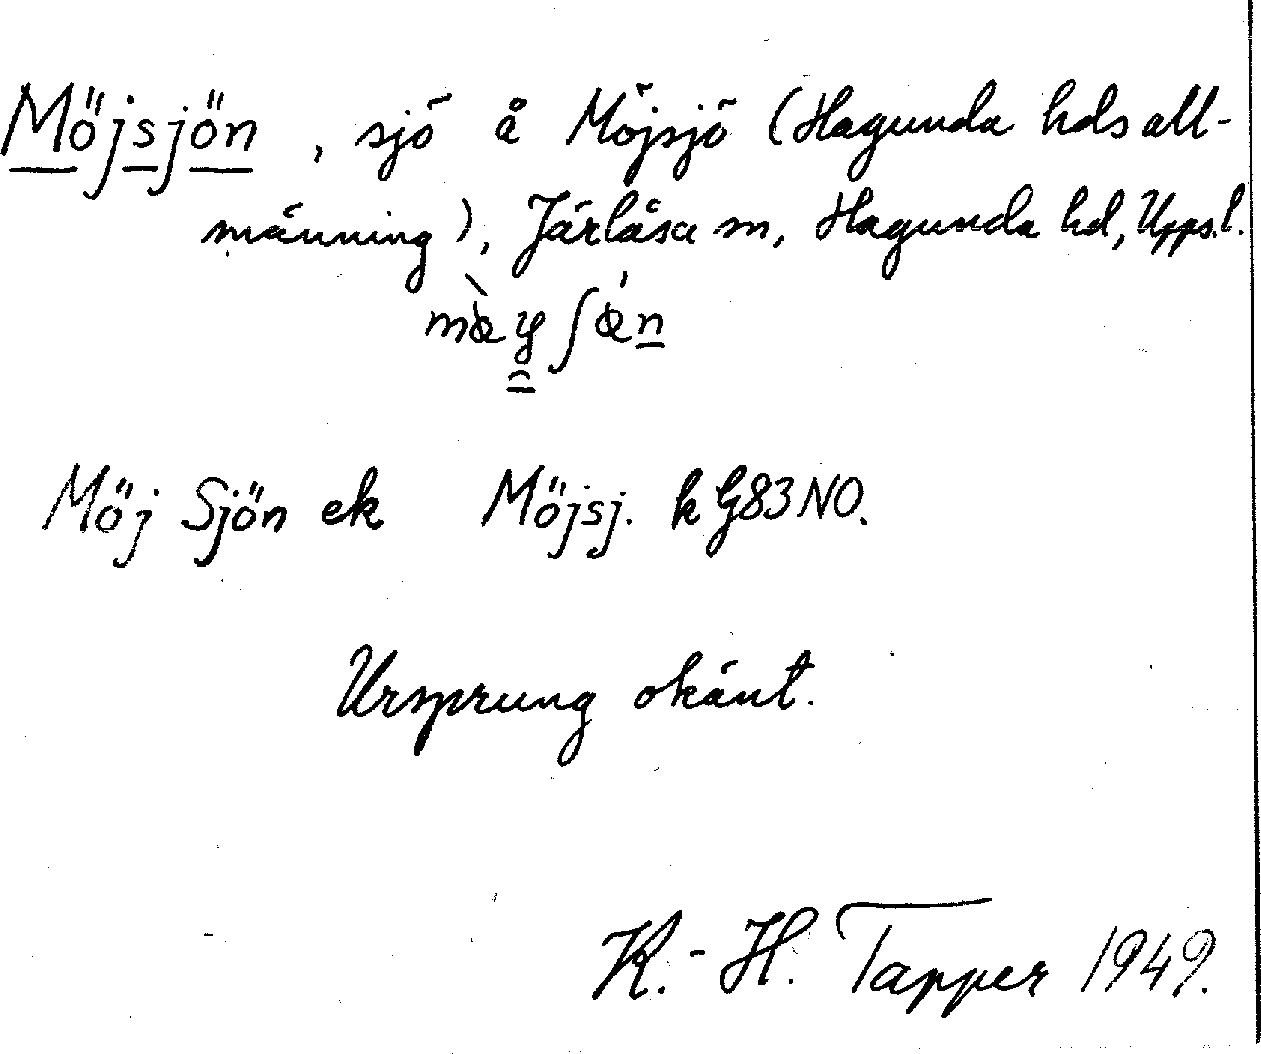 Möjsjön, sjö å Möjsjö (Hagunda hds all-
männing), Järlåsa sn, Hagunda hd, Upps.l.
Möj Sjön ek Möjsj. k G83NO.
Ursprung okänt.
K.-H. Tapper 1949.